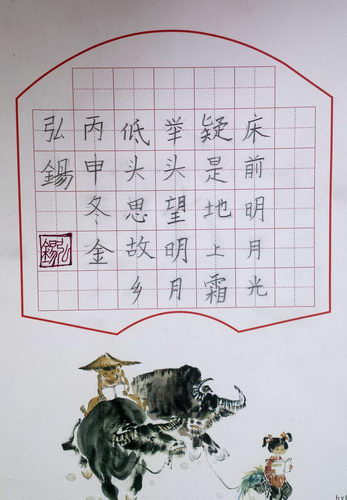 床前明月光
疑是地上霜
举头望明月
低头思故乡
丙申冬金
弘錫
弘錫